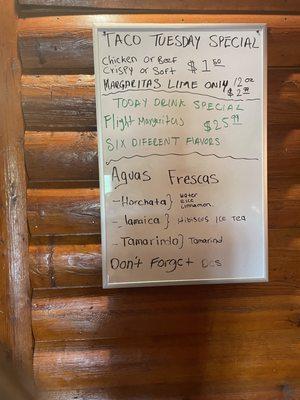 TACO TUESDAY SPECIAL
Chicken or Beef
Crispy or Soft $1.50
MARGARITAS LIME ONLY 12 oz $2.99
TODAY DRINK SPECIAL
Flight Margaritas $25.99
SIX DIFFERENT FLAVORS
Aguas Frescas
- Horchata } water
rice
cinnamon.
- Jamaica } Hibiscus Ice Tea
- Tamarindo } Tamarind
Don't Forget